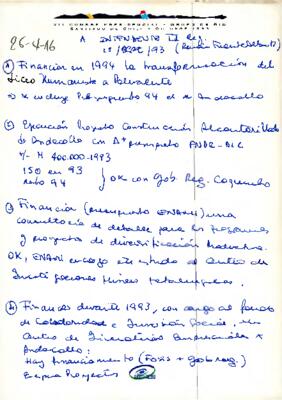 VII CUMBRE PRESIDENCIAL - GRUPO DE RIO
SANTIAGO DE CHILE
26-4-16
A INTENDENTE IV Reg.
1) Financiar en 1994 la transformación del
Liceo Humanista a Polivalente
Presupuesto 94 Andacollo
2) Ejecución Proyecto Construcción Alcantarillado
de Andacollo con presupuesto FNDR-BID
+/- M 400.000-1993
150 en 93
resto 94
OK con Gob. Reg. Coquimbo
3) Financiar (presupuesto ENAMI) una
consultoría de detalle para los programas
y proyectos de diversificación Productiva.
OK, ENAMI encarga estudio al Centro de
Investigaciones Minero Metalúrgicas.
4) Financiar durante 1993, con cargo al fondo
de Solidaridad e Inversión Social, un
Centro de Iniciativas Empresariales
Andacollo:
Hay financiamiento (Fosis + gob reg.)
Proyecto